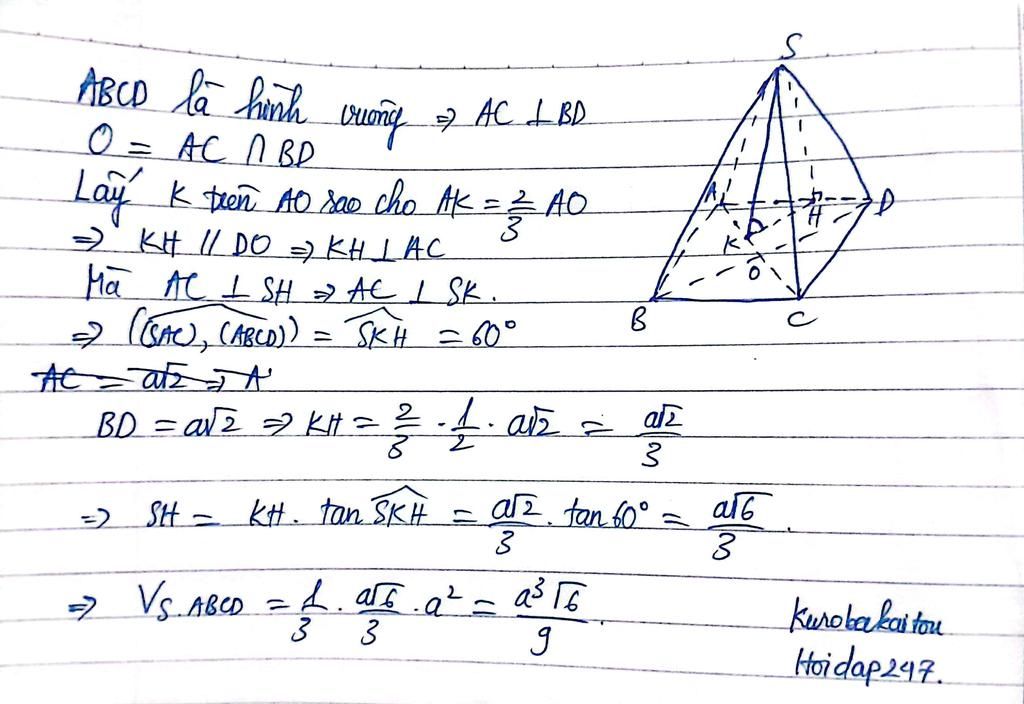 ABCD là hình vuông ⇒ AC ⊥ BD
O = AC ∩ BD
Lấy K trên AO sao cho AK = 2/3 AO
⇒ KH // DO ⇒ KH ⊥ AC
Mà AC ⊥ SH ⇒ AC ⊥ SK.
⇒ ((SAC), (ABCD)) = SKH = 60°
AC = a√2 ⇒ A
BD = a√2 ⇒ KH = 2/3 · 1/2 · a√2 = a√2/3
⇒ SH = KH. tan SKH = a√2/3 . tan 60° = a√6/3.
⇒ VS.ABCD = 1/3 . a√6/3 . a² = a³√6/9.
Kurobakaitou
Hoidap247.
S
A
H
D
K
O
B
C